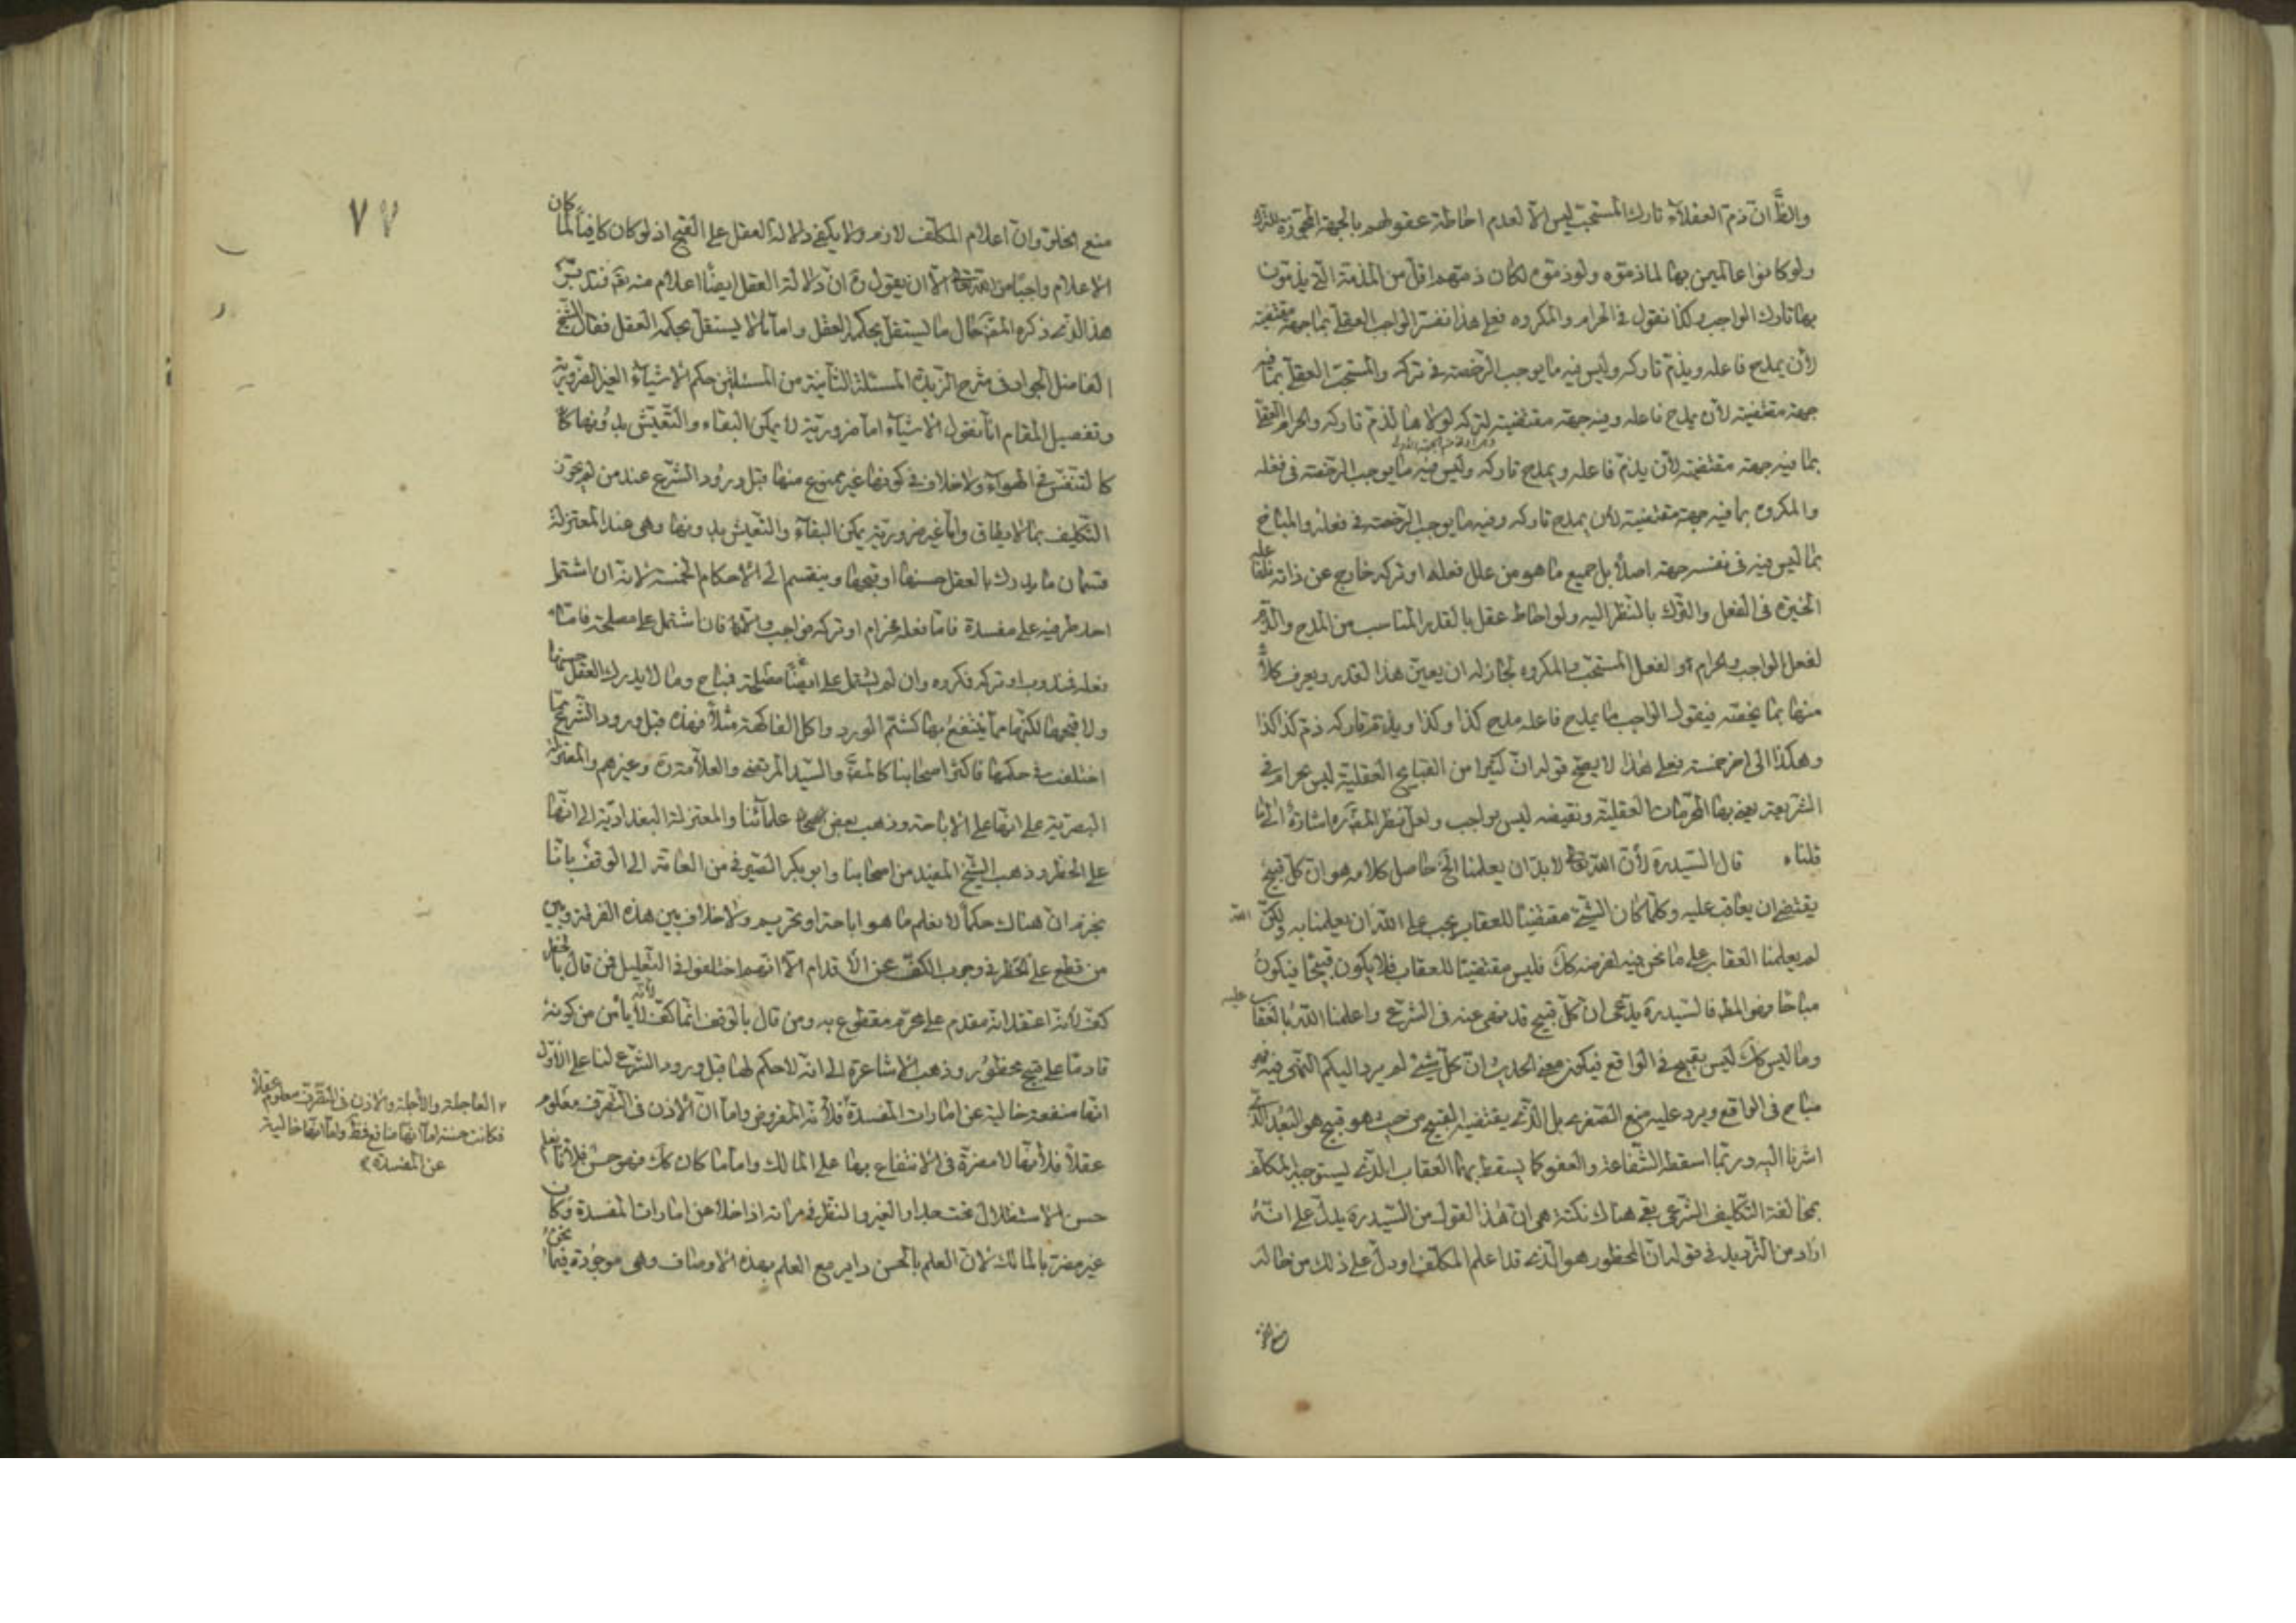 والظ ان ذم العقلاء تارك المستحب ليس الا لعدم احاطة عقولهم بالجهة المجوزة للترك
ولو كانوا عالمين بها لما ذموه ولو ذموه لكان ذمهم اقل من المذمة التي يذمون
بها تارك الواجب وكذا نقول في الحرام والمكروه فعلى هذا نفسر الواجب العقلى بما جهة مقتضية
لأن يمدح فاعله ويذم تاركه وليس فيه ما يوجب الرخصة في تركه والمستحب العقلى بما فيه
جهة مقتضية لأن يمدح فاعله وفيه جهة مقتضية لتركه لولاها لذم تاركه والحرام العقلى
بما فيه جهة مقتضية لأن يذم فاعله ويمدح تاركه وليس فيه ما يوجب الرخصة في فعله
والمكروه بما فيه جهة مقتضية لأن يمدح تاركه وفيه ما يوجب الرخصة في فعله والمباح
بما ليس فيه في نفسه جهة اصلا بل جميع ما هو من علل فعله او تركه خارج عن ذاته فلنا
الخيرة في الفعل والترك بالنظر اليه ولو احاط عقل بالقدر المناسب من المدح والذم
لفعل الواجب والحرام او لفعل المستحب والمكروه لجاز له ان يعين هذا القدر ويعرف كلا
منها بما يخصه فيقول الواجب ما يمدح فاعله مدح كذا وكذا ويذم تاركه ذم كذا كذا
وهكذا الى اخر خمسة فعلى هذا لا يصح قوله ان كثيرا من القبايح العقلية ليس بحرام في
الشريعة يعنى بها المحرمات العقلية ونقيضه ليس بواجب ولعل نظر المص ره اشارة الى ما
قلناه قال السيد ره لأن الله تعالى لا بد ان يعلمنا الخ حاصل كلامه هو ان كل قبيح
يقتضى ان يعاقب عليه وكلما كان الشيء مقتضيا للعقاب يجب على الله ان يعلمنا به ولكن الله
لم يعلمنا العقاب على ما نحن فيه لفرضه كك فليس مقتضيا للعقاب فلا يكون قبيحا فيكون
مباحا وهو المط فالسيد ره يدعى ان كل قبيح قد نهى عنه في الشرع واعلمنا الله بالعقاب عليه
وما ليس كك ليس بقبيح في الواقع فيكون معنى الحديث ان كل شيء لم يرد اليكم النهى فيه فهو
مباح في الواقع ويرد عليه منع الصغرى بل الذى يقتضيه القبيح من حيث هو قبيح هو البعد الذى
اشرنا اليه وربما اسقطه الشفاعة والعفو كما يسقط بهما العقاب الذى يستوجبه المكلف
بمخالفة التكليف الشرعى بقى هناك نكتة هى ان هذا القول من السيد ره يدل على انه
اراد من الترديد في قوله ان المحظور هو الذى قد اعلم المكلف او دل على ذلك من حاله
٧٧
منع الخلق وان اعلام المكلف لازم ولا يكفى دلالة العقل على القبح اذ لو كان كافيا لما كان
الاعلام واجبا من الله تعالى الا ان يقول ره ان دلالة العقل ايضا اعلام منه تع فتدبر
هذا الذى ذكره المص حال ما يستقل بحكمه العقل واما ما لا يستقل بحكمه العقل فقال الشيخ
الفاضل الجواد في شرح الزبدة المسئلة الثانية من المسئلتين حكم الاشياء الغير الضرورية
وتفصيل المقام انا نقول الاشياء اما ضرورية لا يمكن البقاء والتعيش بدونها كا
كالتنفس في الهواء ولا خلاف في كونها غير ممنوع منها قبل ورود الشرع عند من لم يجوز
التكليف بما لا يطاق واما غير ضرورية يمكن البقاء والتعيش بدونها وهى عند المعتزلة
قسمان ما يدرك بالعقل حسنها او قبحها وينقسم الى الاحكام الخمسة لانه ان اشتمل
احد طرفيه على مفسدة فاما فعله فحرام او تركه فواجب والا فان اشتمل على مصلحة فاما
فعله فمندوب او تركه فمكروه وان لم يشتمل على مصلحة فمباح وما لا يدرك العقل حسنها
ولا قبحها لكنها مما ينتفع بها كشتم الورد واكل الفاكهة مثلا فهذه قبل ورود الشرع مما
اختلف في حكمها فاكثر اصحابنا كالمص والسيد المرتضى والعلامة ره وغيرهم والمعتزلة
البصرية على انها على الاباحة وذهب بعض علمائنا والمعتزلة البغدادية الى انها
على الحظر وذهب الشيخ المفيد من اصحابنا وابو بكر الصيرفى من العامة الى الوقف بانا
نجزم ان هناك حكما لا نعلم ما هو اباحة او تحريم ولا خلاف بين هذه الفرقة وبين
من قطع على الحظر في وجوب الكف عن الاقدام الا انهم اختلفوا في التعليل فمن قال بالحظر
كف لأنه اعتقد انه مقدم على محرم مقطوع به ومن قال بالوقف انما كف لأنه لا يأمن من كونه
قادما على قبيح محظور وذهب الاشاعرة الى انه لا حكم لها قبل ورود الشرع لنا على الاول
انها منفعة خالية عن امارات المفسدة فلأنه المفروض واما ان الاذن في التصرف معلوم
عقلا فلأنها لا مضرة في الانتفاع بها على المالك واما ما كان كك فهو حسن فلأنا نعلم
حسن الاستظلال تحت جدار الغير والنظر في مرآته اذا خلا عن امارات المفسدة وكان
غير مضر بالمالك لان العلم بالحسن داير مع العلم بهذه الاوصاف وهى موجودة فيما نحن
العاجلة والآجلة والاذن في التصرف معلوم عقلا
فكانت حسنة اما انها منافع فظ واما انها خالية
عن المفسدة